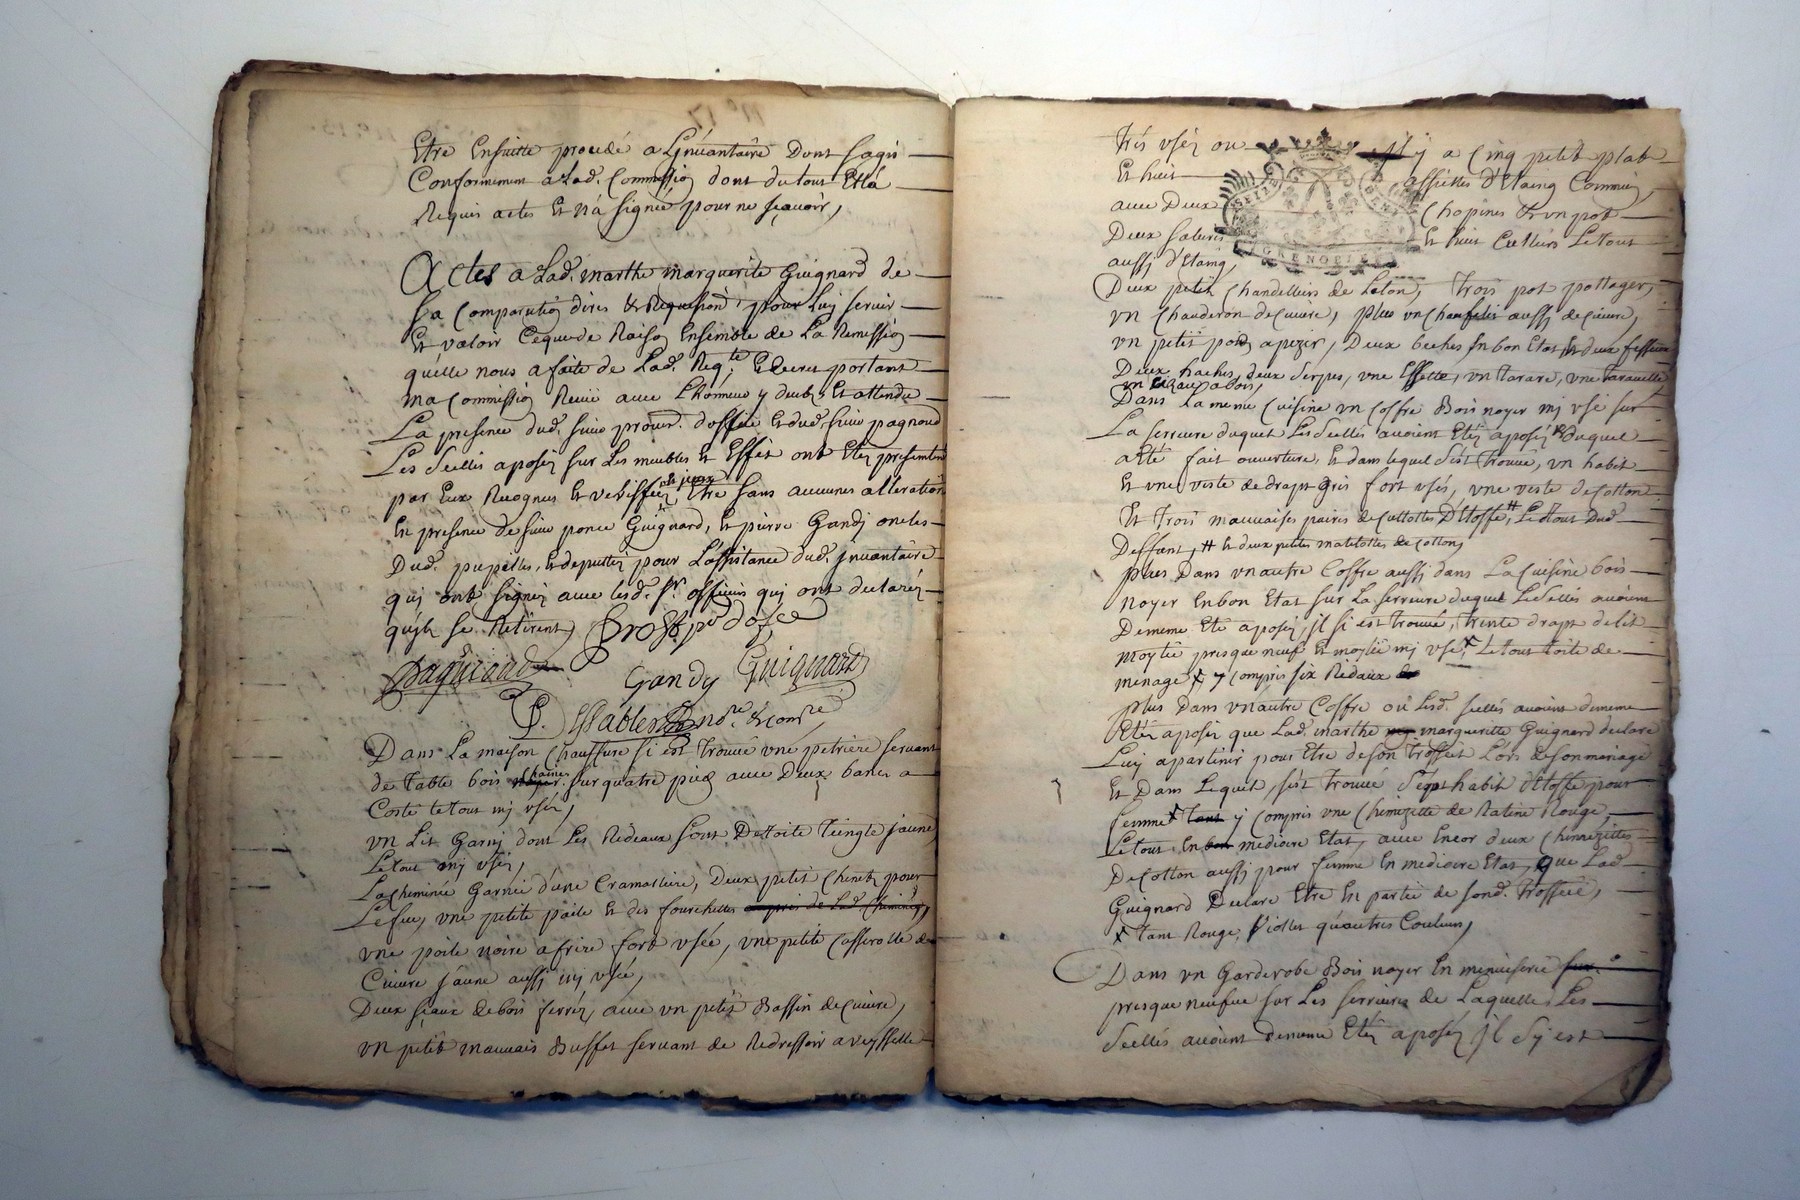 Etre Ensuitte procedé a Ljnuantaire Dont sagit
Conformement a Lad. Commission dont du tout Ella
Requis actes Et n'a signée pour ne sçauoir,
Actes a Lad. marthe marguerite Guignard de
sa Comparution dires & Requisition, pour Luy seruir
Et valoir Ceque de Raison Ensemble de La Remission
quelle nous a faite de Lad. Reqte. Et decret portant
ma Commission Receüe auec Lhonneur y deub, Et attendu
La presence dud. sieur procur. doffice Et dud. sieur pagnoud
Les seellés aposéz sur Les meubles Et Effet ont Etéz presentem
par Eux Recognus Et veriffiez Etre sans aucunes alteration
En presence de sieur ponce Guignard, Et pierre Gandj oncles
Dud. pupilles, Et deputtéz pour L'assistance dud. jnuantaire
quj ont signéz auec lesd. srs. officiers quj ont declaréz
quils se Retirent,
Gandy Guignard
Dans La maison Chauffure si est trouué vne petrière seruant
de table bois noyer sur quatre pieds auec Deux bancs a
Costé le tout mj vséé,
vn Lit Garnj dont Les Rideaux sont De toile teingte jaune
Le tout mj vséz,
La Cheminée Garnie d'une Cramalliere, Deux petit Chenetz pour
Le feu, vne petite paile Et des fourchettes apres de Lad. Cheminée,
vne poile noire a frire fort vsée, vne petite Casserolle de
Cuiure jaune aussj mj vsée,
Deux siaux de bois ferréz, auec vn petit Bassin de Cuiure,
vn petit mauuais Buffet seruant de Redressoir a veysselle
trés vséz ou il y a Cinq petit plats
Et huit assiettes d'Etaing Commun,
auec Deux Chopines Et vn pot
GRENOBLE
Deux salieres Et huit Cuilliers Le tout
aussj d'Etaing,
Deux petits Chandelliers de Leton, trois pot pottager,
vn Chauderon de Cuiure, plus vn Chaufelit aussj de Cuiure,
vn petit poid a pezer, Deux beches En bon Etat
Deux haches, deux serpes, vne Essette, vn tarare, vne tarauelle
Dans La meme Cuisine vn Coffre Bois noyer mj vsé sur
La serreure duquel Les seellés auoient Etéz aposéz duquel
a eté fait ouuerture, Et dans lequel s'est trouué, vn habit
Et vne veste de drapt Gris fort vsés, vne veste de Cotton
Et trois mauuaises paires de Cullottes D'Etoffe, # Le tout Dud.
Deffant, # Et deux petites matelottes de Cotton,
plus Dans vn autre Coffre aussj dans La Cuisine bois
noyer En bon Etat sur La serreure duquel Le seellés auoient
De meme Eté aposéz, jl si est trouué, trente drapt de lit
moytié presque neuf Et moytié mj vsé, x Le tout toile de
menage x y Compris six Rideaux
plus Dans vn autre Coffre ou Lesd. seellés auoient de meme
Etéz aposéz que Lad. marthe marguerite Guignard declare
Luy apartenir pour Etre de son trosseit Lors de son mariage
Et Dans Lequel, s'est trouué sept habit d'Etoffe pour
femme x tant y Compris vne Chemizette de Ratine Rouge,
Le tout En bon mediocre Etat, auec Encor deux Chemizettes
De Cotton aussj pour femme En mediocre Etat, que Lad.
Guignard Declare Etre En partie de sond. trosseit,
x tant Rouge, Violet qu'autres Couleurs,
Dans vn Garderobe Bois noyer En menuiserie
presque neufue sur Les serreures de Laquelle Les
seellés auoient de meme Etéz aposéz jl s'y est